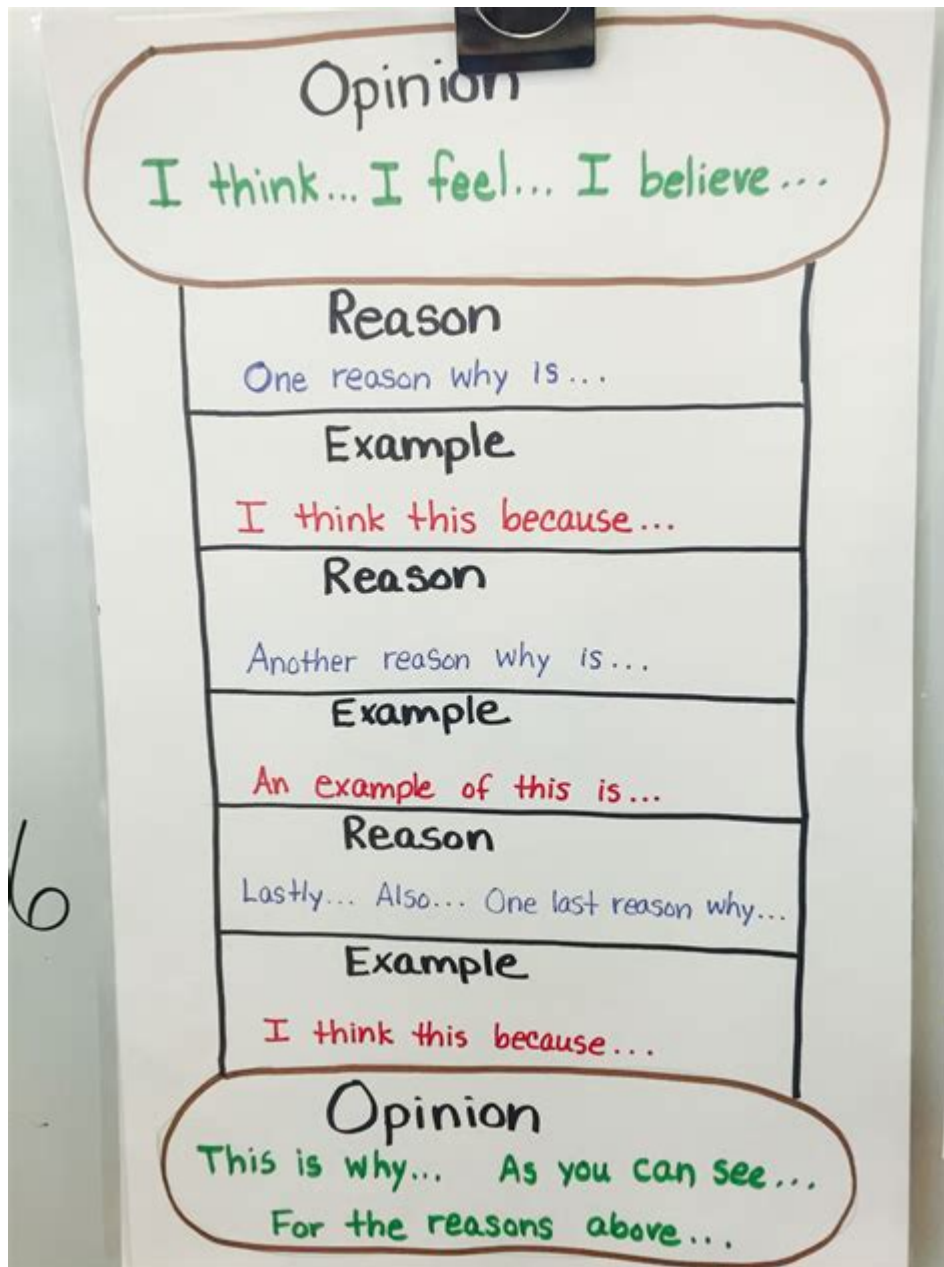 Opinion
I think... I feel... I believe...
Reason
One reason why is...
Example
I think this because...
Reason
Another reason why is...
Example
An example of this is...
Reason
Lastly... Also... One last reason why...
Example
I think this because...
Opinion
This is why... As you can see...
For the reasons above...
6